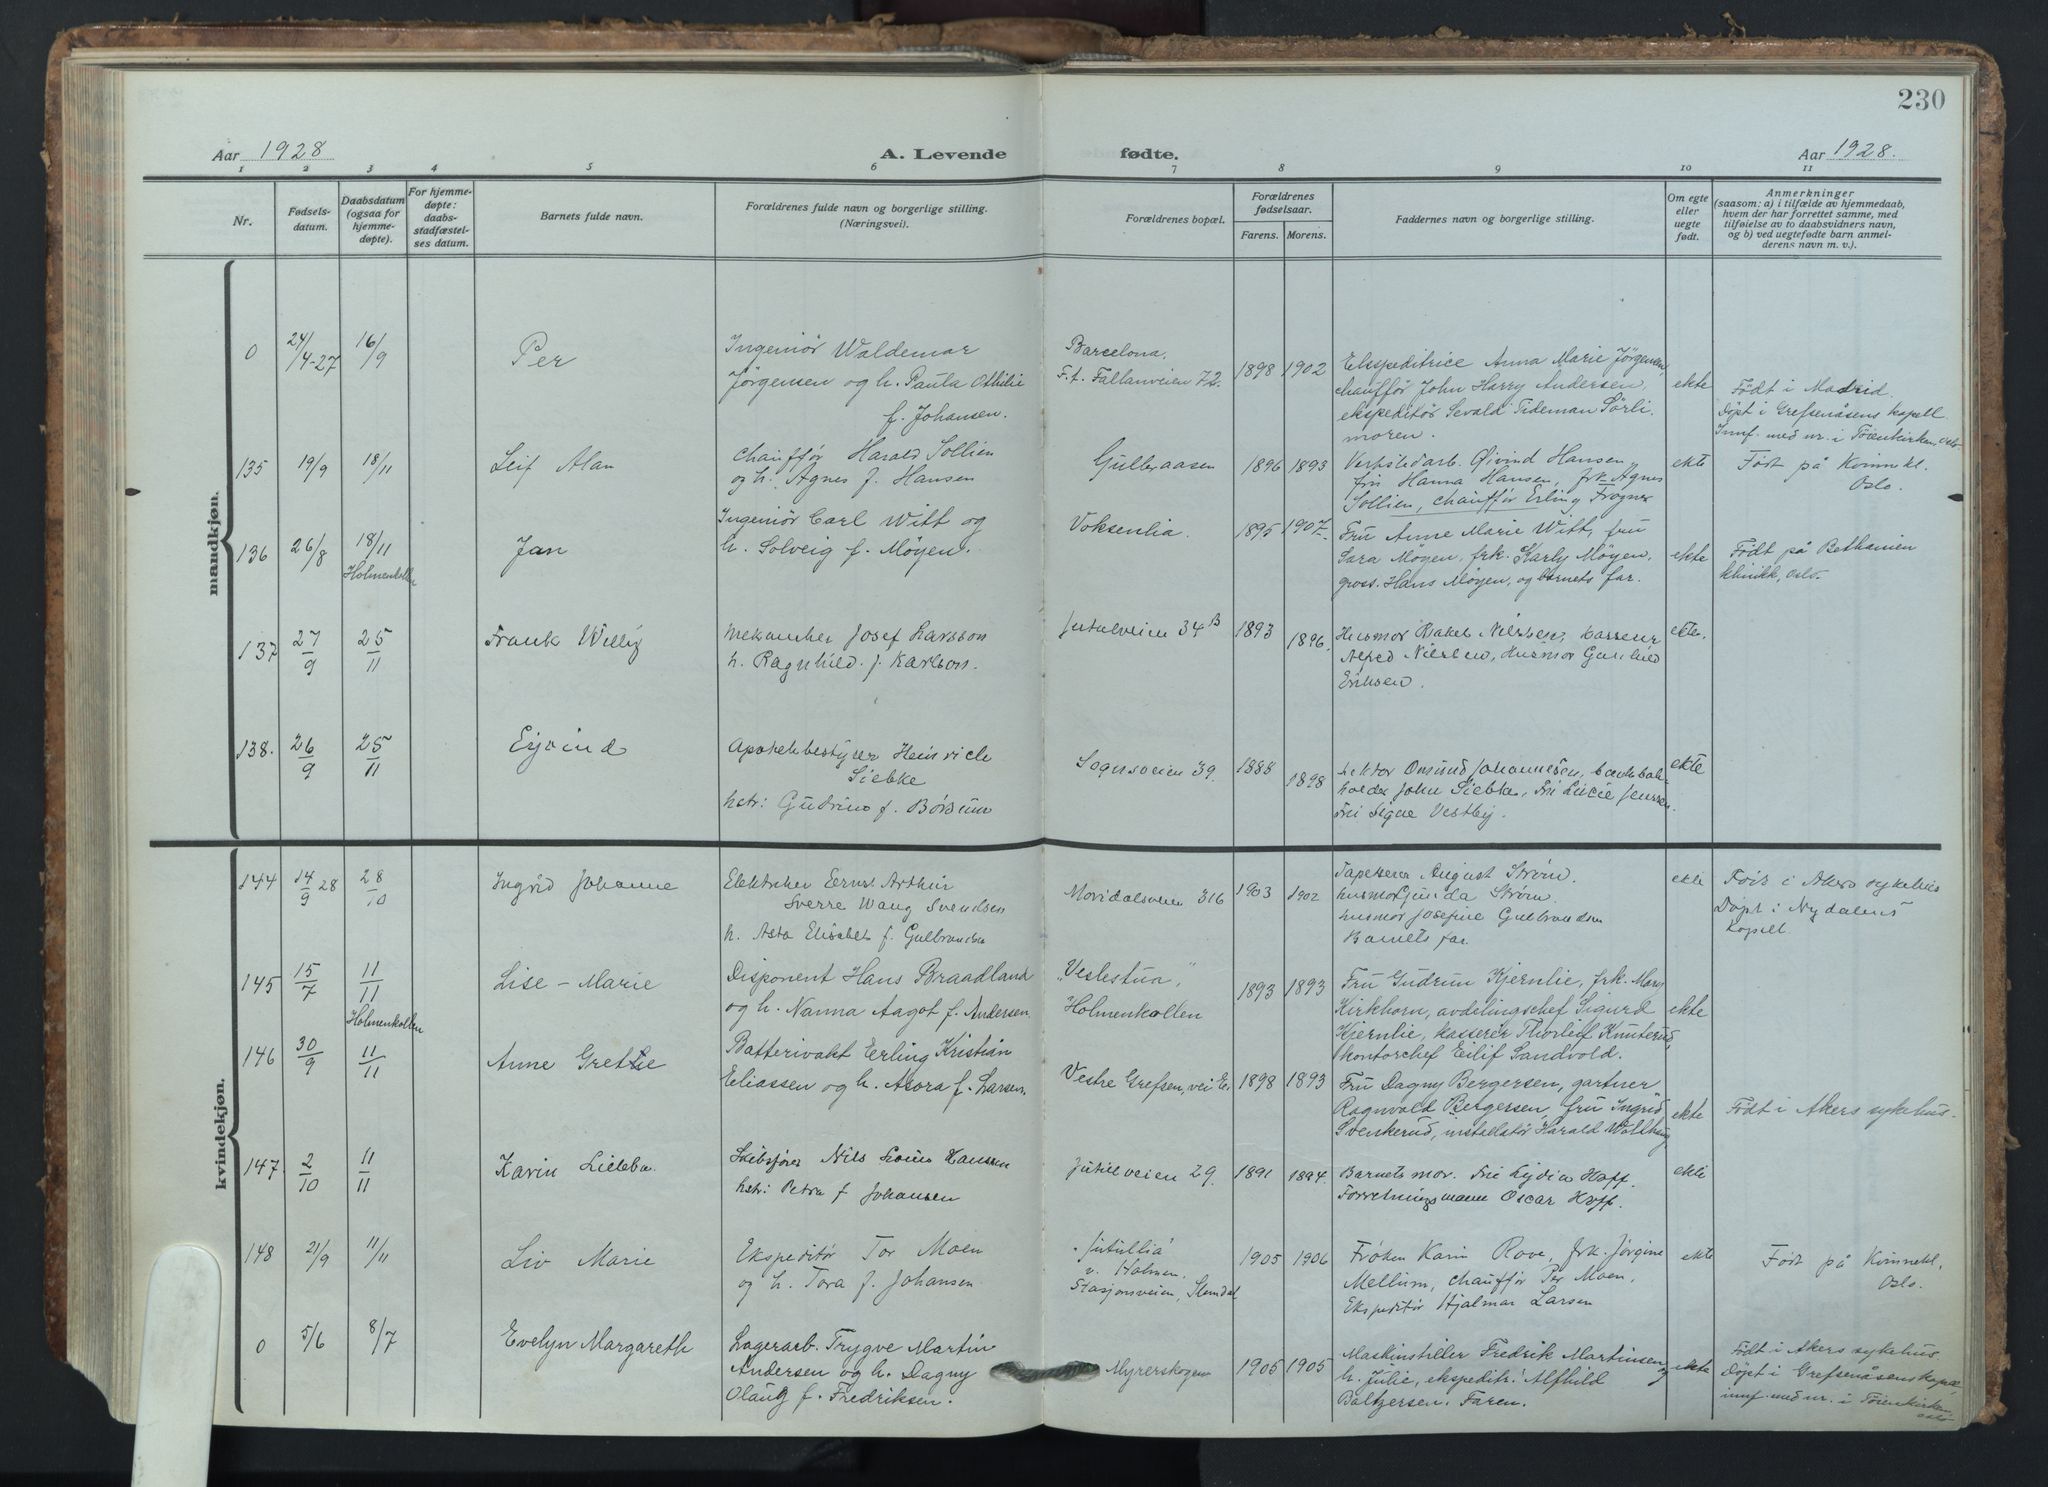 230
Aar 1928
A. Levende
fødte.
Aar 1928.
1 2 3 4 5 6 7 8 9 10 11
Nr.
Fødsels-
datum.
Daabsdatum
(ogsaa for
hjemme-
døpte).
For hjemme-
døpte:
daabs-
stadfæstel-
ses datum.
Barnets fulde navn.
Forældrenes fulde navn og borgerlige stilling.
(Næringsvei).
Forældrenes bopæl.
Forældrenes
fødselsaar.
Farens. Morens.
Faddernes navn og borgerlige stilling.
Om egte
eller
uegte
født.
Anmerkninger
(saasom: a) i tilfælde av hjemmedaab,
hvem der har forrettet samme, med
tilføielse av to daabsvidners navn,
og b) ved uegtefødte barn anmel-
derens navn m. v.).
mandkjøn.
0
24/4-27
16/9
Per
Ingeniør Waldemar
Jørgensen og h. Paula Othilie
f. Johansen.
Barcelona.
F.t. Fallanveien 72.
1898 1902
Ekspeditrice Anna Marie Jørgensen,
chauffør John Harry Andersen,
ekspeditør Sevald Tideman Sørli.
moren.
ekte
Født i Madrid
Døpt i Grefsenåsens kapell.
Innf. med nr. i Tøienkirken, Oslo
135
19/9
18/11
Leif Alan
Chauffør Harald Sollien
og h. Agnes f. Hansen
Gulleraasen
1896 1893
Verkstedarb. Øivind Hansen
fru Hanna Hansen, frk. Agnes
Sollien, chauffør Erling Frogner
ekte
Født på Kvinnekl.
Oslo.
136
26/8
18/11
Holmenkollen
Jan
Ingeniør Carl Witt og
h. Solveig f. Møyen.
Voksenlia.
1895 1907.
Fru Anne Marie Witt, fru
Sara Møyen, frk. Karly Møyen,
gross. Hans Møyen, og barnets far.
ekte
Født på Bethanien
klinikk, Oslo.
137
27/9
25/11
Frank Willy
Mekaniker Josef Larsson
h. Ragnhild f. Karlson.
Jutulveien 34 B
1893 1896.
Husmor Rakel Nielsen, kasserer
Alfred Nielsen, Husmor Gunhild
Eriksen.
ekte.
138.
26/9
25/11
Eyvind
Apotekbestyrer Heinrich
Siebke
hstr: Gudrun f. Børsum
Sognsveien 39.
1888 1898
Lektor Omund Johannesen,
holder John Siebke, Fru Lucie Jenssen
Fru Signe Vestby.
ekte
kvindekjøn.
144
14/9 28
28/10
Ingrid Johanne
Elektriker Ernst Arthur
Sverre Wang Svendsen
h. Asta Elisabet f. Gulbrandsen
Maridalsveien 316
1903 1902
Tapetserer August Strøm.
husmor Gunda Strøm.
husmor Josefine Gulbrandsen
Barnets far.
ekte
Født i Akers sykehus
Døpt i Nydalens
kapell
145
15/7
11/11
Holmenkollen
Lise - Marie
Disponent Hans Braadland
og h. Nanna Aagot f. Andersen.
"Veslestua",
Holmenkollen
1893 1893
Fru Gudrun Kjernlie, frk. Mary
Kirkhorn, avdelingschef Sigurd
Kjernlie, kasserer Thorleif Knuterud,
kontorchef Eilif Sandvold.
ekte
146
30/9
11/11
Anne Grethe
Batterivakt Erling Kristian
Eliassen og h. Asora f. Larsen.
Vestre Grefsen, vei E.
1898 1893
Fru Dagny Bergersen, gartner
Ragnvald Bergersen, fru Ingrid
Svenkerud, installatør Harald
ekte
Født i Akers sykehus.
147.
2/10
11/11
Karin Lillebo.
Skibsfører Nils Louis Hanssen
hstr: Petra f Johansen
Jutulveien 29.
1891 1894
Barnets mor. Fru Lydia Hoff.
Forretningsmann Oscar Hoff.
ekte
148
21/9
11/11
Liv Marie
Ekspeditør Tor Moen
og h. Tora f. Johansen.
"Jutullia"
v. Holmen.
Stasjonsveien, Slemdal
1905 1906
Frøken Karin Rove, frk. Jørgine
Mellum, chauffør Per Moen,
Ekspeditør Hjalmar Larsen
ekte
Født på Kvinnekl.
Oslo.
0
5/6
8/7
Evelyn Margareth
Lagerarb. Trygve Martin
Andersen og h. Dagny
Olaug f. Fredriksen.
Myrerskogen
1905 1905
Maskinstiller Fredrik Martinsen og
h. Julie, ekspeditr. Alfhild
Baltzersen. Faren.
ekte
Født i Akers sykehus
døpt i Grefsenåsens kapell,
innf. med nr. i Tøienkirken,
Oslo